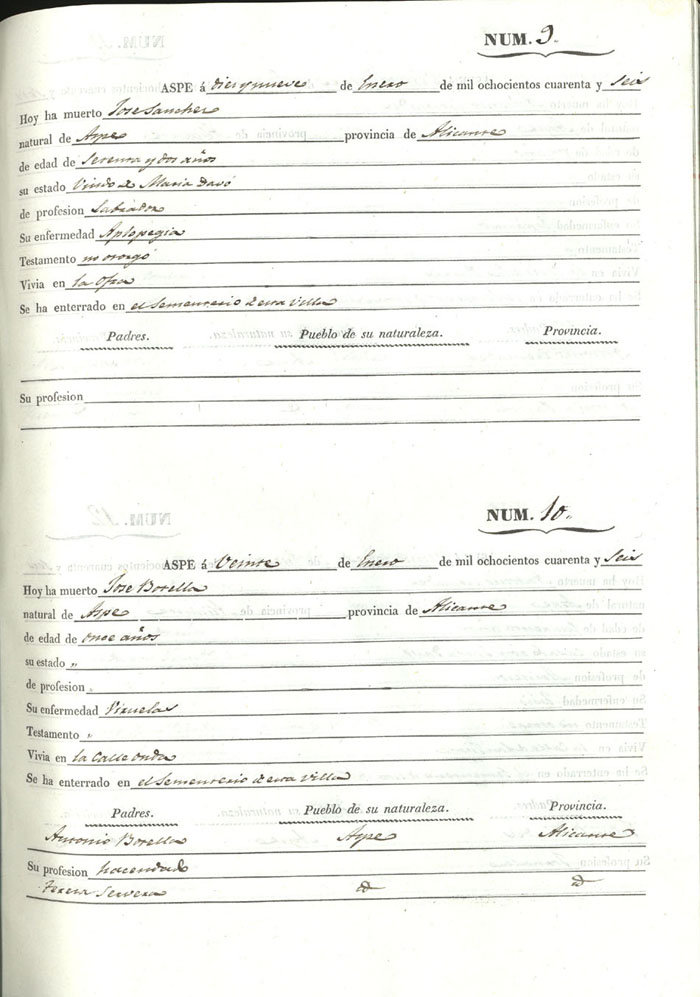 NUM. 9.
ASPE á diez y nueve de Enero de mil ochocientos cuarenta y seis
Hoy ha muerto Jose Sanchez
natural de Aspe provincia de Alicante
de edad de setenta y dos años
su estado Viudo de Maria Davó
de profesion Labrador
Su enfermedad Aplopegia
Testamento no otorgó
Vivia en la
Se ha enterrado en el Sementerio de esta Villa
Padres. Pueblo de su naturaleza. Provincia.
Su profesion
NUM. 10.
ASPE á Veinte de Enero de mil ochocientos cuarenta y seis
Hoy ha muerto Jose Botella
natural de Aspe provincia de Alicante
de edad de once años
su estado "
de profesion
Su enfermedad Viruelas
Testamento "
Vivia en la Calle onda
Se ha enterrado en el Sementerio de esta Villa
Padres. Pueblo de su naturaleza. Provincia.
Antonio Botella Aspe Alicante
Su profesion hacendado
Teresa Cervera id id